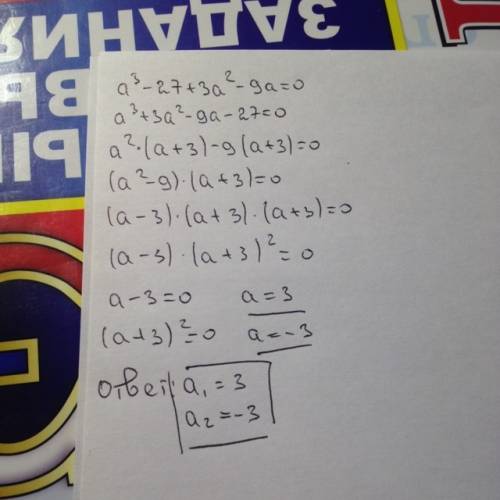 ЗАДАНИЯ
a³-27+3a²-9a=0
a³+3a²-9a-27=0
a²·(a+3)-9(a+3)=0
(a²-9)·(a+3)=0
(a-3)·(a+3)·(a+3)=0
(a-3)·(a+3)²=0
a-3=0 a=3
(a+3)²=0 a=-3
ответ: a₁=3
a₂=-3